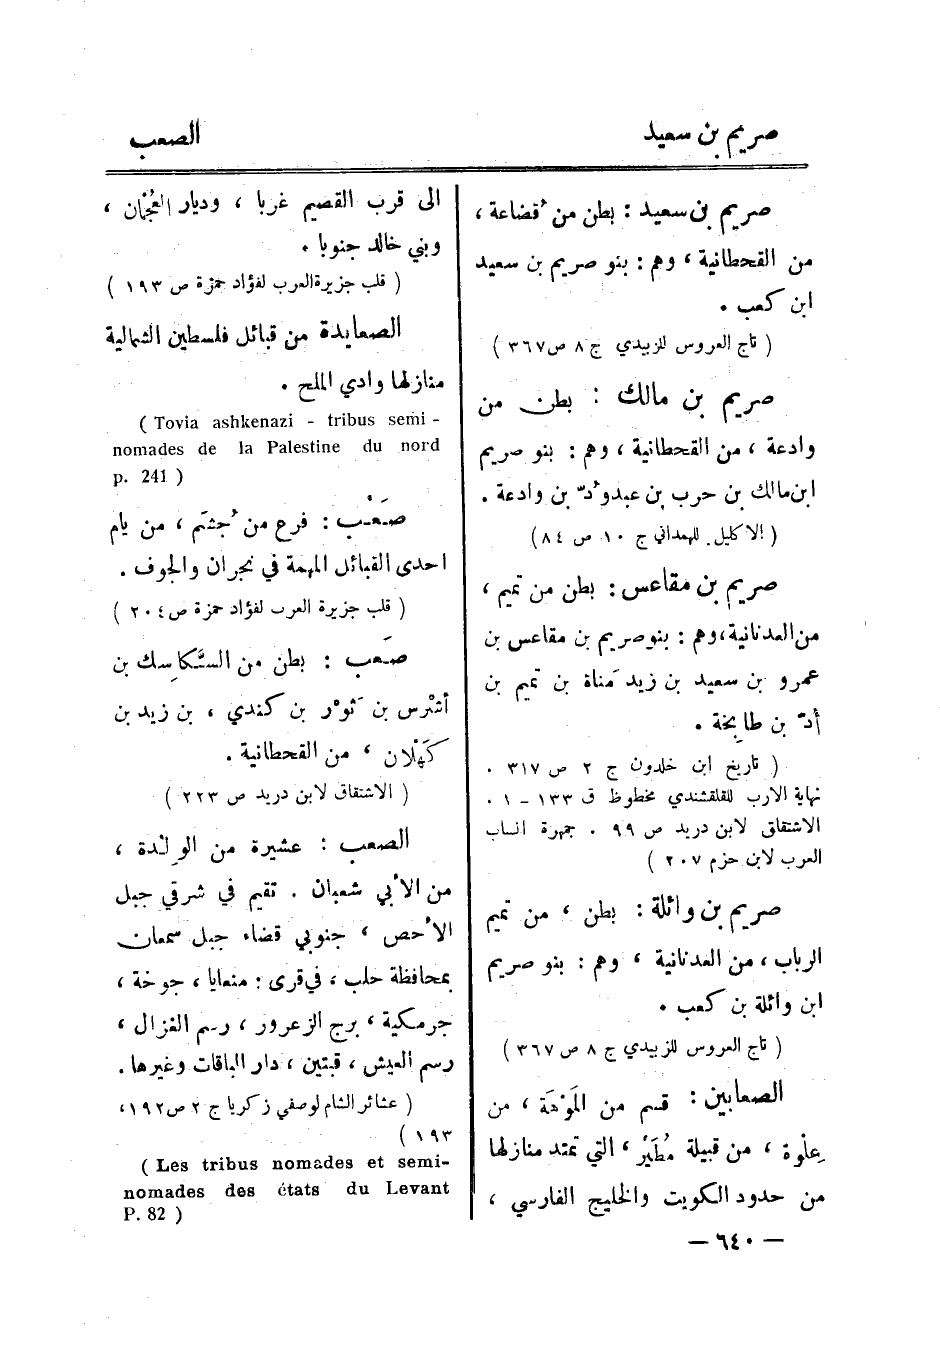 صريم بن سعيد
الصعب
صريم بن سعيد : بطن من قُضاعة ،
من القحطانية ، وهم : بنو صريم بن سعيد
ابن كعب .
( تاج العروس للزبيدي ج ٨ ص ٣٦٧ )
صريم بن مالك : بطن من
وادعة ، من القحطانية ، وهم : بنو صريم
ابن مالك بن حرب بن عبدوُدّ بن وادعة .
( الاكليل للهمداني ج ١٠ ص ٨٤ )
صريم بن مقاعس : بطن من تميم ،
من العدنانية ، وهم : بنو صريم بن مقاعس بن
عمرو بن سعيد بن زيد مَناة بن تميم بن
أدّ بن طابخة .
( تاريخ ابن خلدون ج ٢ ص ٣١٧ .
نهاية الارب للقلقشندي مخطوظ ق ١٣٣ - ١ .
الاشتقاق لابن دريد ص ٩٩ . جمهرة انساب
العرب لابن حزم ٢٠٧ )
صريم بن وائلة : بطن ، من تميم
الرباب ، من العدنانية ، وهم : بنو صريم
ابن وائلة بن كعب .
( تاج العروس للزبيدي ج ٨ ص ٣٦٧ )
الصعابين : قسم من المَوْهَة ، من
عِلْوة ، من قبيلة مُطَيْر ، التي تمتد منازلها
من حدود الكويت والخليج الفارسي ،
الى قرب القصيم غربا ، وديار العُجْمَان ،
وبني خالد جنوبا .
( قلب جزيرة العرب لفؤاد حمزة ص ١٩٣ )
الصعايدة من قبائل فلسطين الشمالية
منازلها وادي الملح .
( Tovia ashkenazi - tribus semi -
nomades de la Palestine du nord
p. 241 )
صَعْب : فرع من جُشَم ، من يام
احدى القبائل المهمة في نجران والجوف .
( قلب جزيرة العرب لفؤاد حمزة ص ٢٠٤ )
صَعب : بطن من السَّكَاسِك بن
أَشْرس بن ثَوْر بن كندي ، بن زيد بن
كَهْلان ، من القحطانية .
( الاشتقاق لابن دريد ص ٢٢٣ )
الصعب : عشيرة من الولدة ،
من الأبي شعبان . تقيم في شرقي جبل
الأحص ، جنوبي قضاء جبل سمعان
بمحافظة حلب ، في قرى : منعايا ، جوخة ،
جرمكية ، برج الزعرور ، رسم الغزال ،
رسم العيش ، قبتين ، دار الباقات وغيرها .
( عشائر الشام لوصفي زكريا ج ٢ ص ١٩٢ ،
١٩٣ )
( Les tribus nomades et semi-
nomades des états du Levant
P. 82 )
— ٦٤٠ —